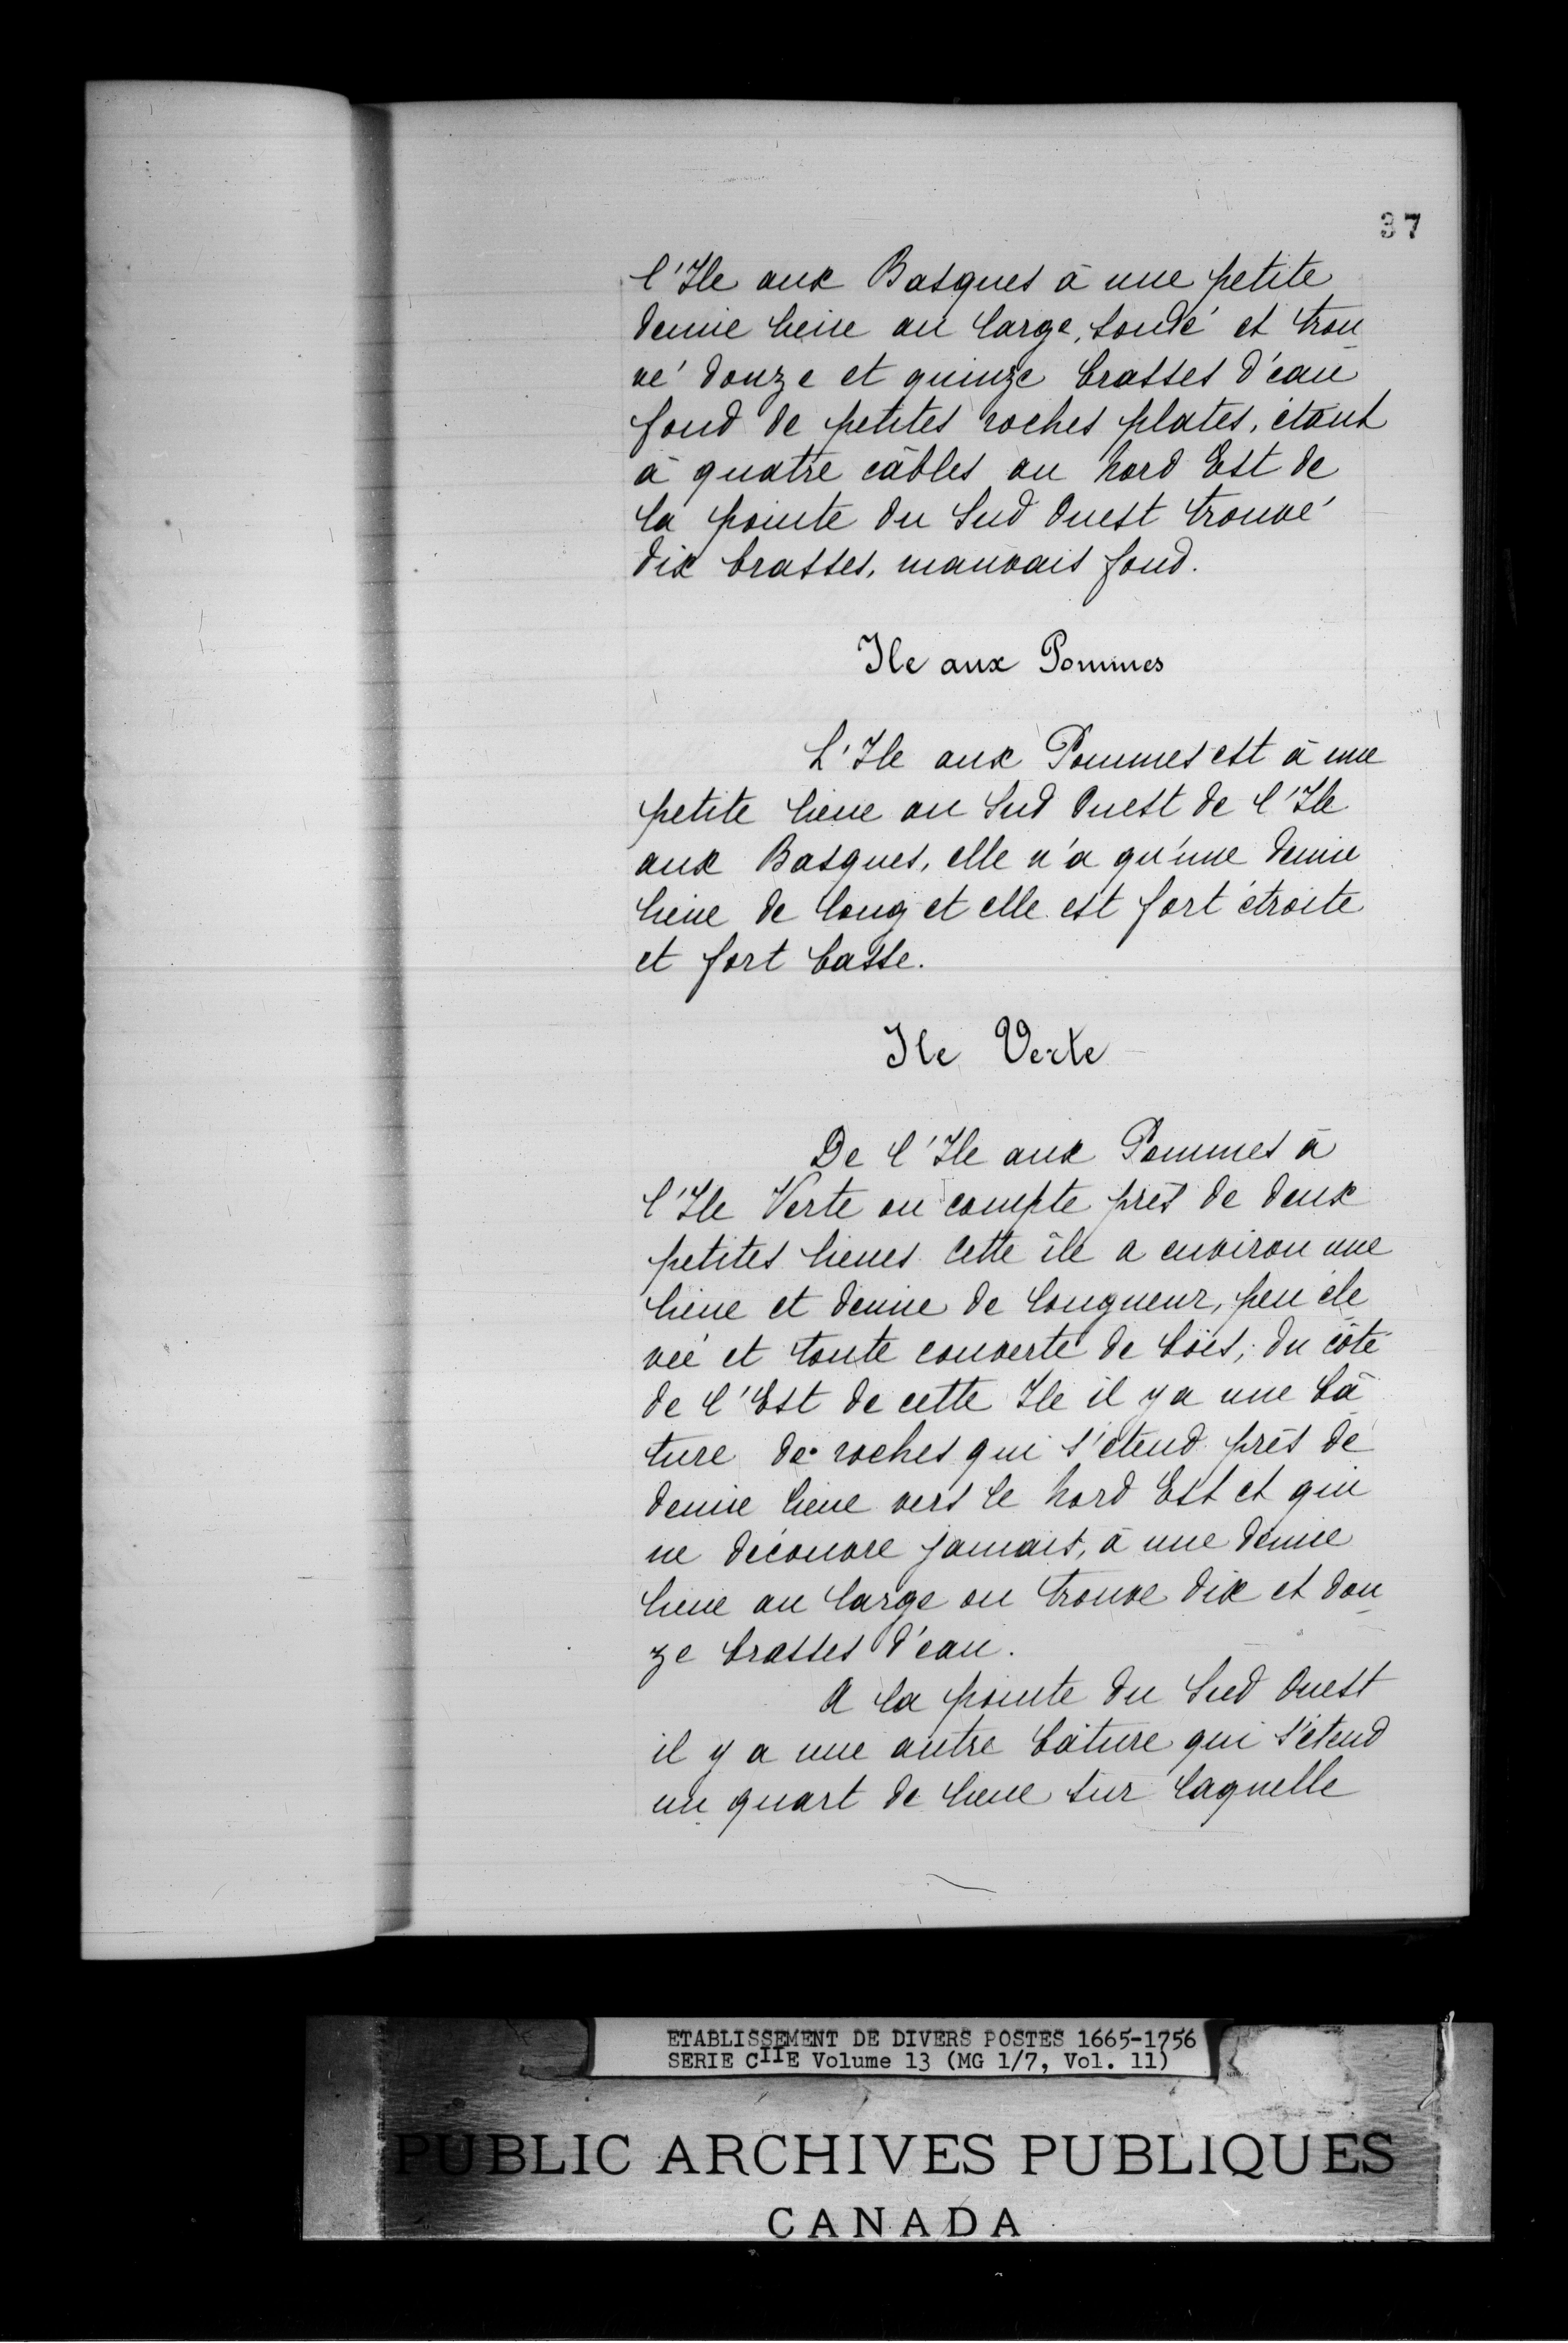 37
l'Ile aux Basques à une petite
demie lieue au large, sondé et trou
vé douze et quinze brasses d'eau
fond de petites roches plates, étant
à quatre câbles au Nord Est de
la pointe du Sud Ouest trouvé
dix brasses, mauvais fond.
Ile aux Pommes
L'Ile aux Pommes est à une
petite lieue au Sud Ouest de l'Ile
aux Basques, elle n'a qu'une demie
lieue de long et elle est fort étroite
et fort basse.
Ile Verte
De l'Ile aux Pommes à
l'Ile Verte on compte près de deux
petites lieues cette île a environ une
lieue et demie de longueur, peu éle
vée et toute couverte de bois; du côté
de l'Est de cette Ile il y a une bâ
ture de roches qui s'étend près de
demie lieue vers le Nord Est et qui
ne découvre jamais, à une demie
lieue au large on trouve dix et dou
ze brasses d'eau.
A la pointe du Sud Ouest
il y a une autre bâture qui s'étend
un quart de lieue sur laquelle
ETABLISSEMENT DE DIVERS POSTES 1665-1756
SERIE CIIE Volume 13 (MG 1/7, Vol. 11)
PUBLIC ARCHIVES PUBLIQUES
CANADA